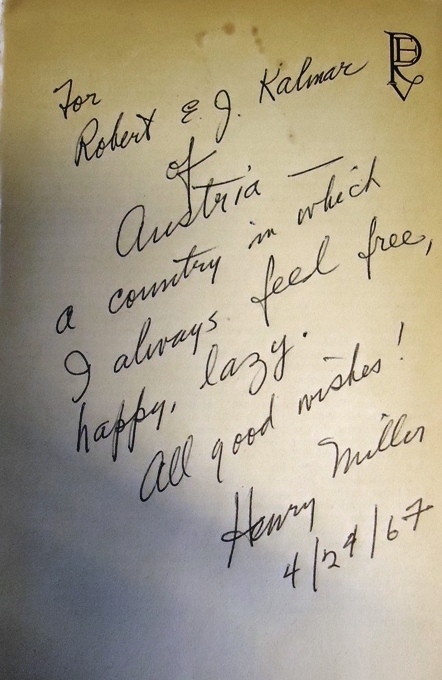 For
Robert E. J. Kalmar
of
Austria —
a country in which
I always feel free,
happy, lazy.
All good wishes!
Henry Miller
4/29/67